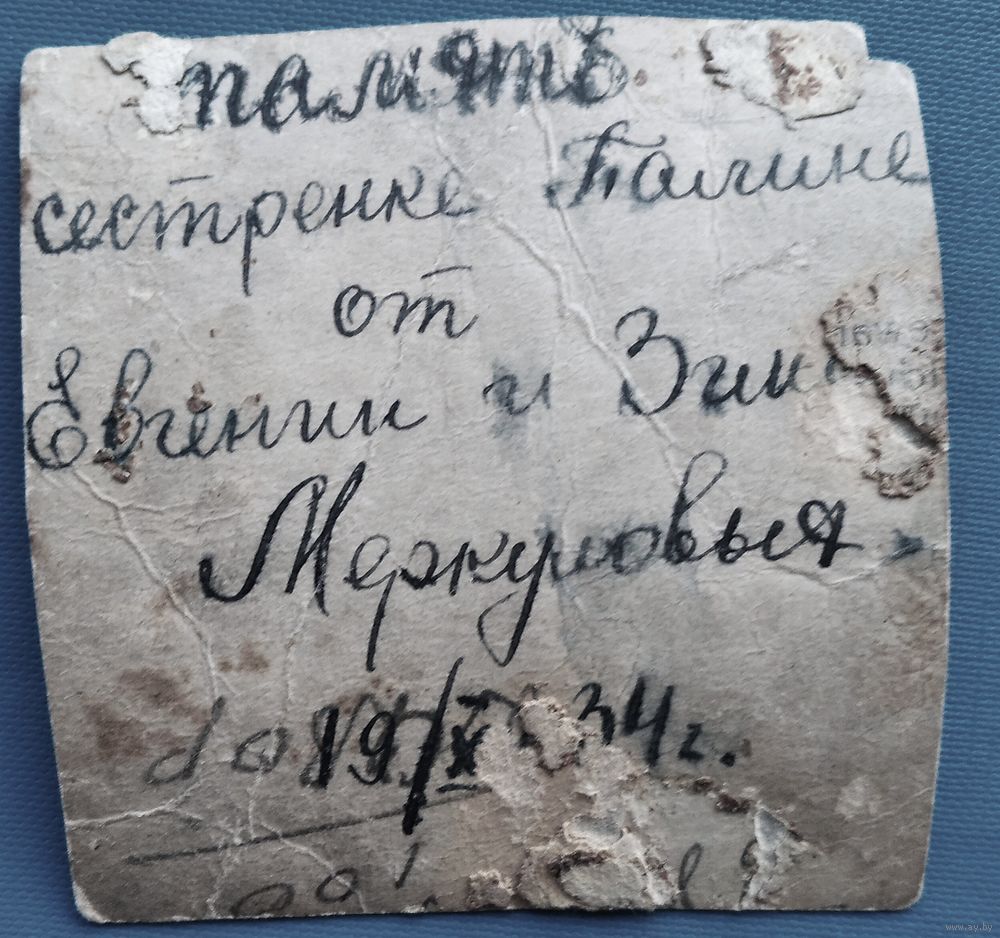 память
сестренке Галине
от
Евгении и Зины
Меркуловыя
19/X 34 г.
www.ay.by